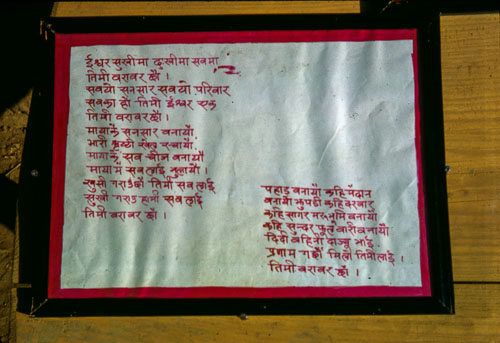 ईश्वर सुखीमा दुःखीमा सबमा
तिमी बराबर छौ ।
सबथो सनसार सबथो परिवार
सबका हौ तिमी ईश्वर एक
तिमी बराबर छौ ।
मायाले सनसार बनायौ
भारी खेल रचायौ
मायाले सब चीज बनायौ
माया मै सबलाई भुलायौ ।
खुसी गराउछौ तिमी सबलाई
सुखी गराउ हामी सबलाई
तिमी बराबर छौ ।
पहाड बनायौ कहि मैदान
बनायौ झुपडी कहि दरबार
कहि सागर मरुभूमि बनायौ
कहि सुन्दर फूल बारी बनायौ
दिदी बहिनी दाज्यु भाई
प्रणाम गर्छौ मिली तिमीलाई ।
तिमी बराबर छौ ।